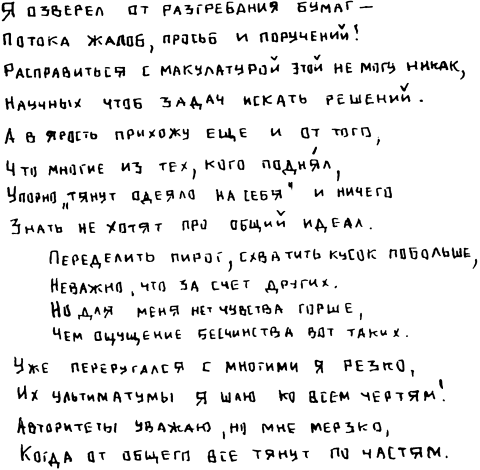 Я озверел от разгребания бумаг —
Потока жалоб, просьб и поручений!
Расправиться с макулатурой этой не могу никак,
Научных чтоб задач искать решений.
А в ярость прихожу еще и от того,
Что многие из тех, кого подня́л,
Упорно „тянут одеяло на себя" и ничего
Знать не хотят про общий идеал.
Переделить пирог, схватить кусок побольше,
Неважно, что за счет других.
Но для меня нет чувства горше,
Чем ощущение бесчинства вот таких.
Уже переругался с многими я резко,
Их ультиматумы я шлю ко всем чертям!
Авторитеты уважаю, но мне мерзко,
Когда от общего все тянут по частям.